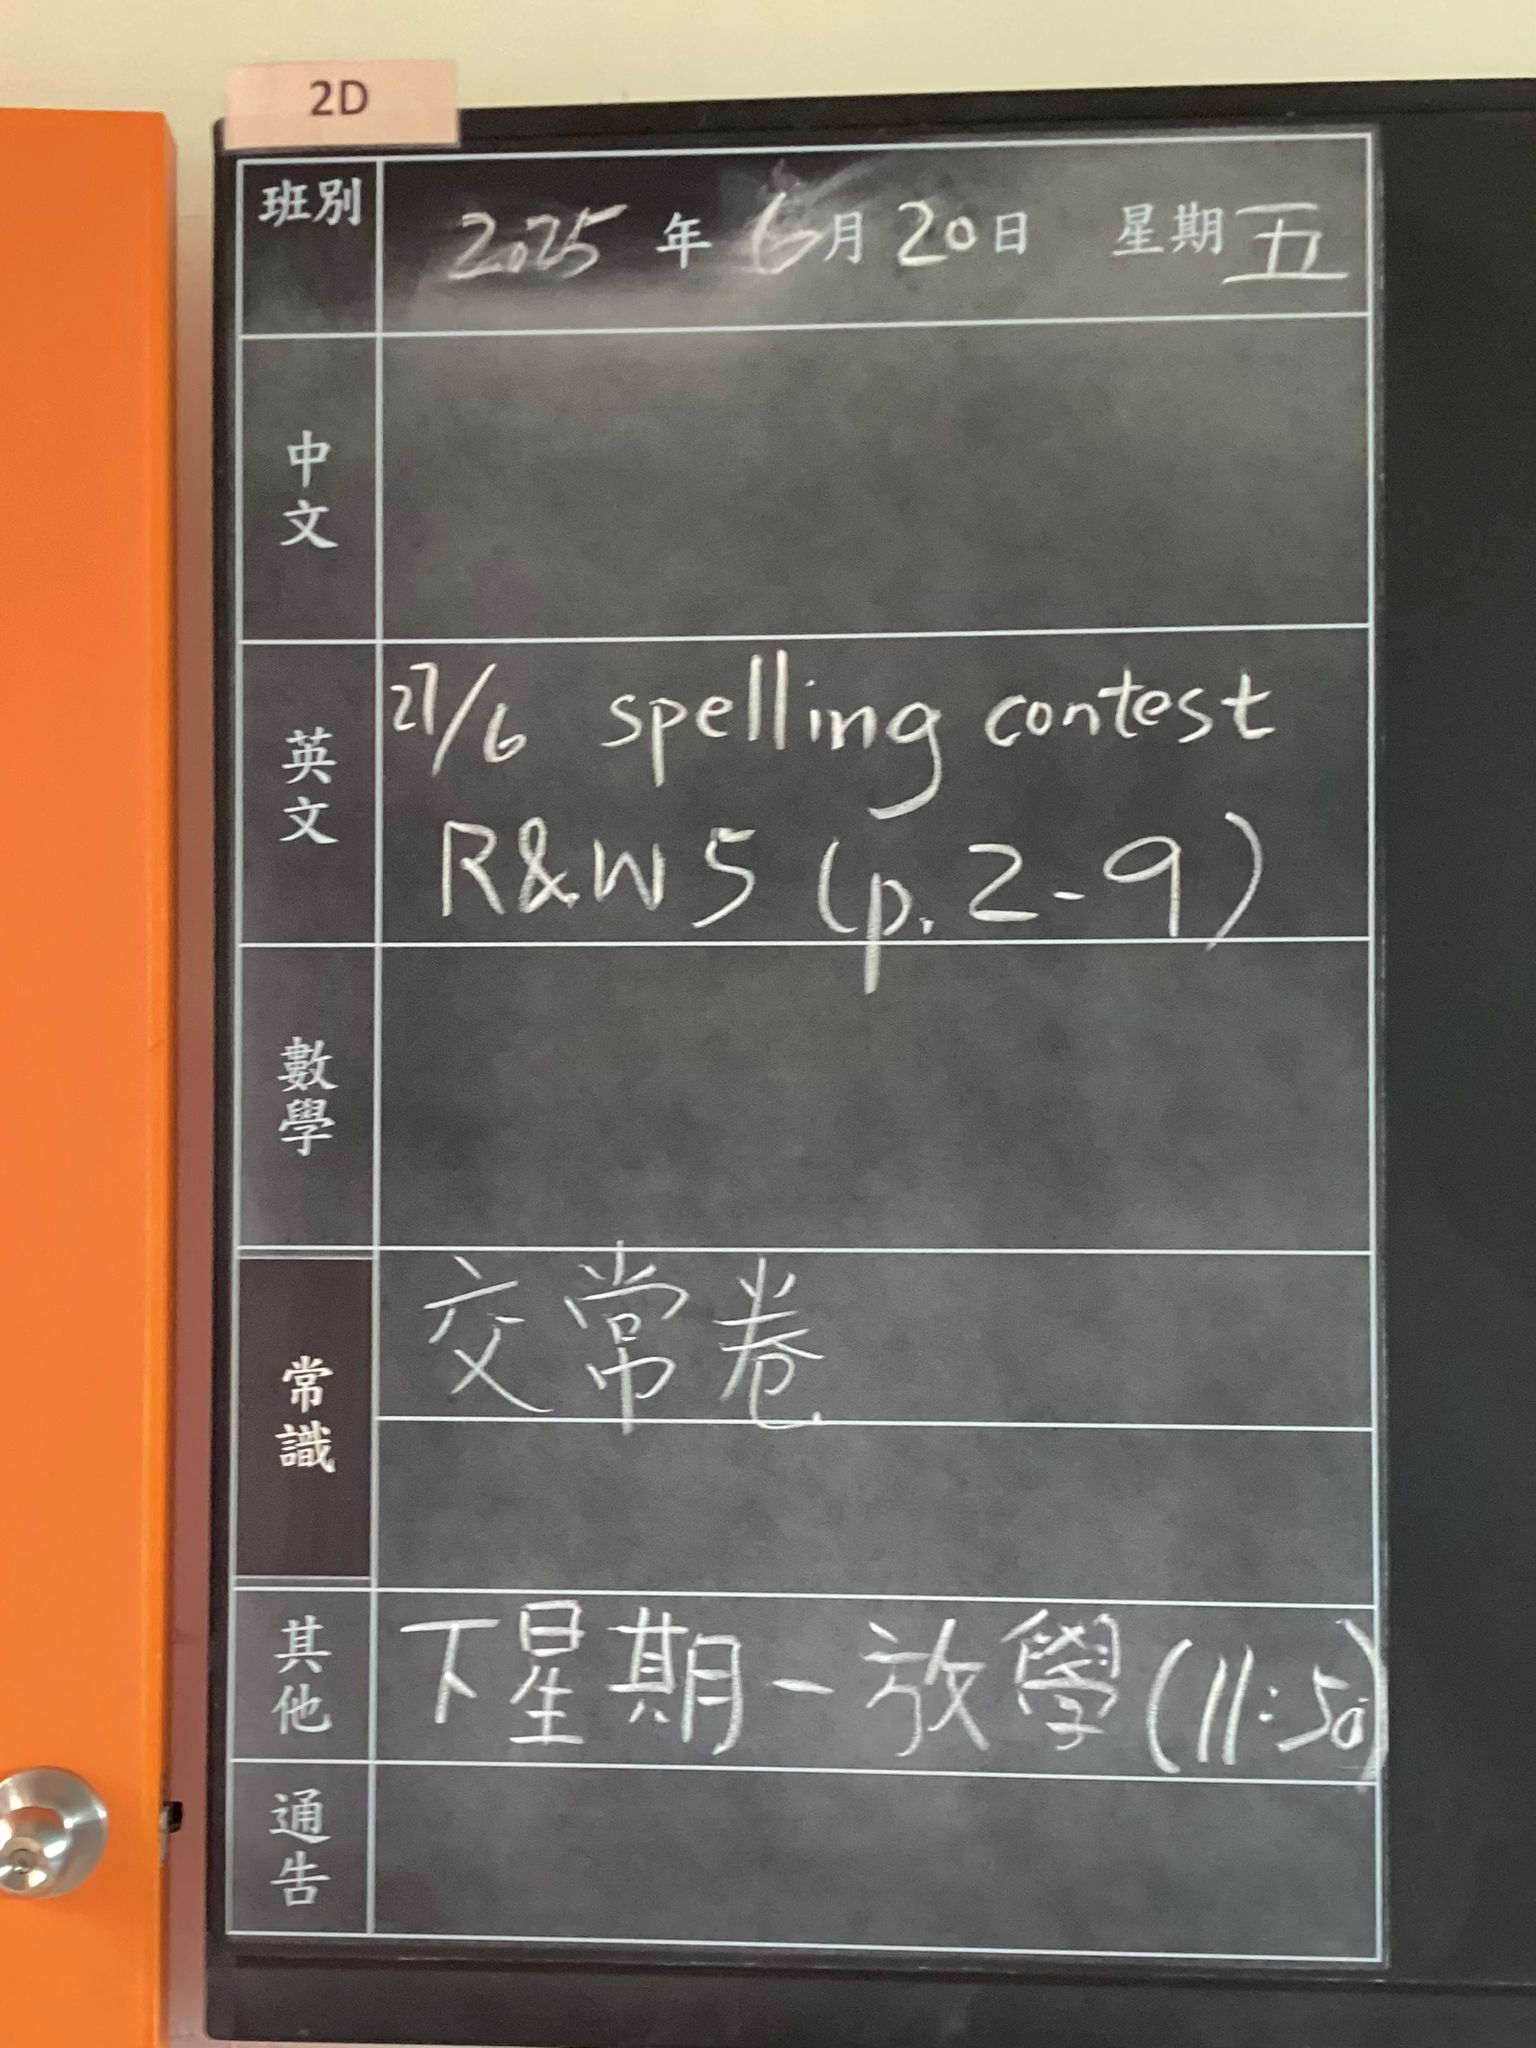 2D
班別
2025 年 6 月 20 日 星期 五
中文
英文
27/6 spelling contest
R&W 5 (p. 2-9)
數學
常識
交常卷
其他
下星期一放學 (11:50)
通告